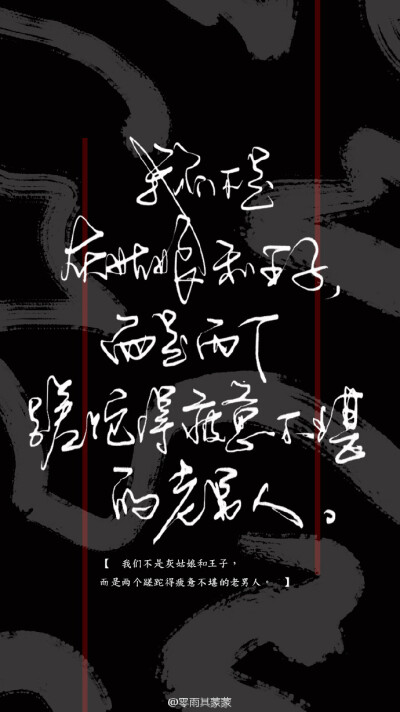 我们不是
灰姑娘和王子，
而是两个
蹉跎得疲惫不堪
的老男人。
【 我们不是灰姑娘和王子，
而是两个蹉跎得疲惫不堪的老男人。 】
@零雨其蒙蒙